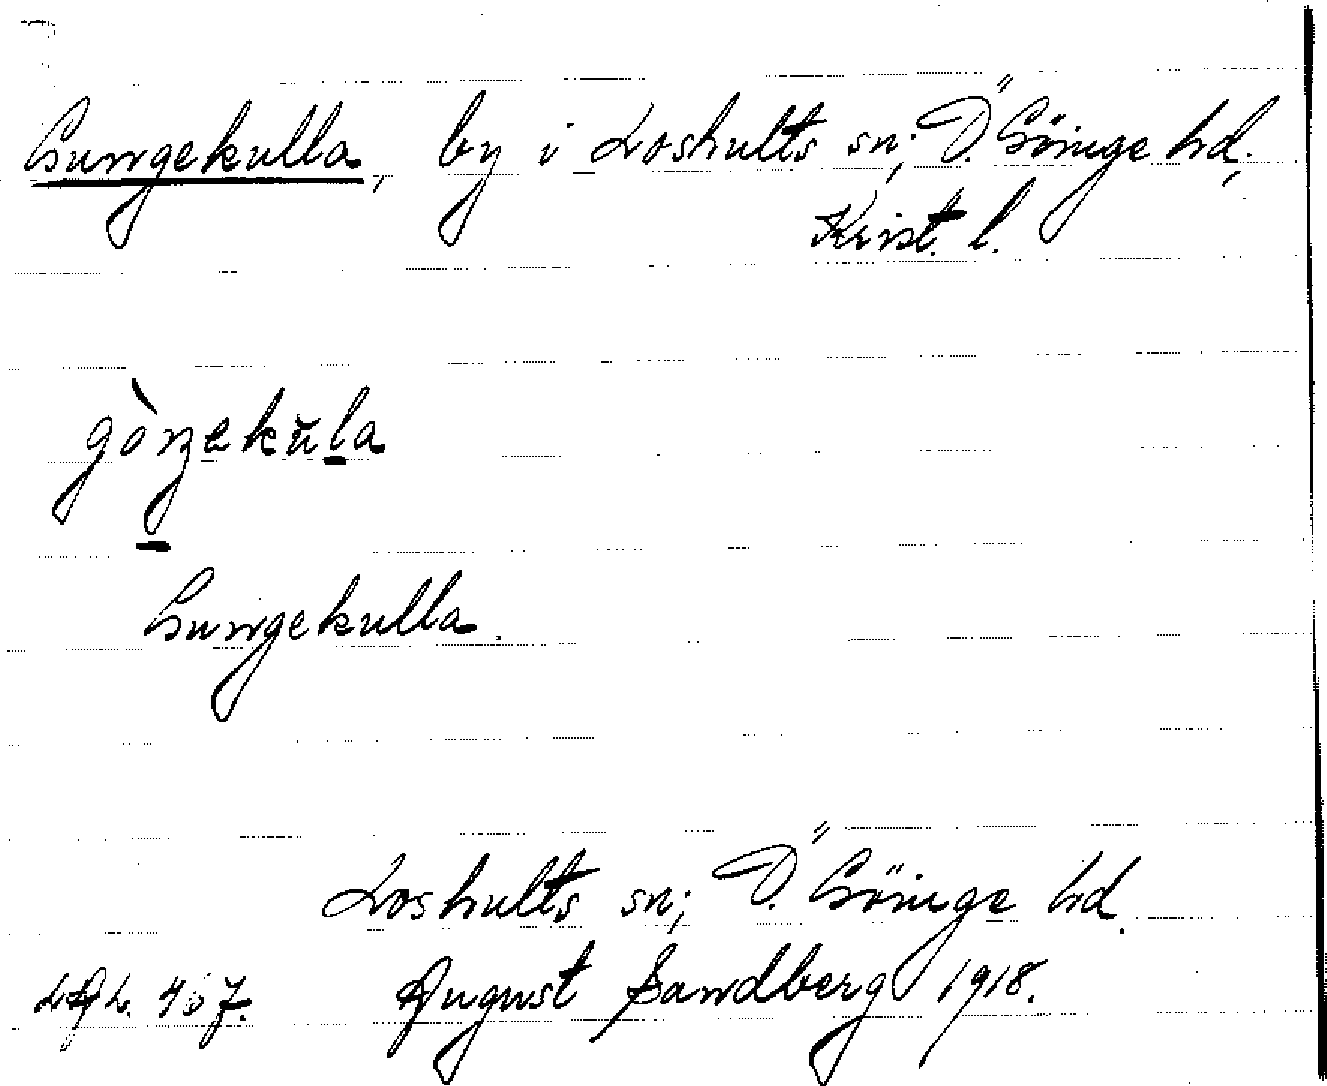 Gungekulla, by i Loshults sn; Ö. Göinge hd.,
Krist. l.
gòŋekŭla
Gungekulla.
Loshults sn; Ö. Göinge hd.
August Sandberg 1918.